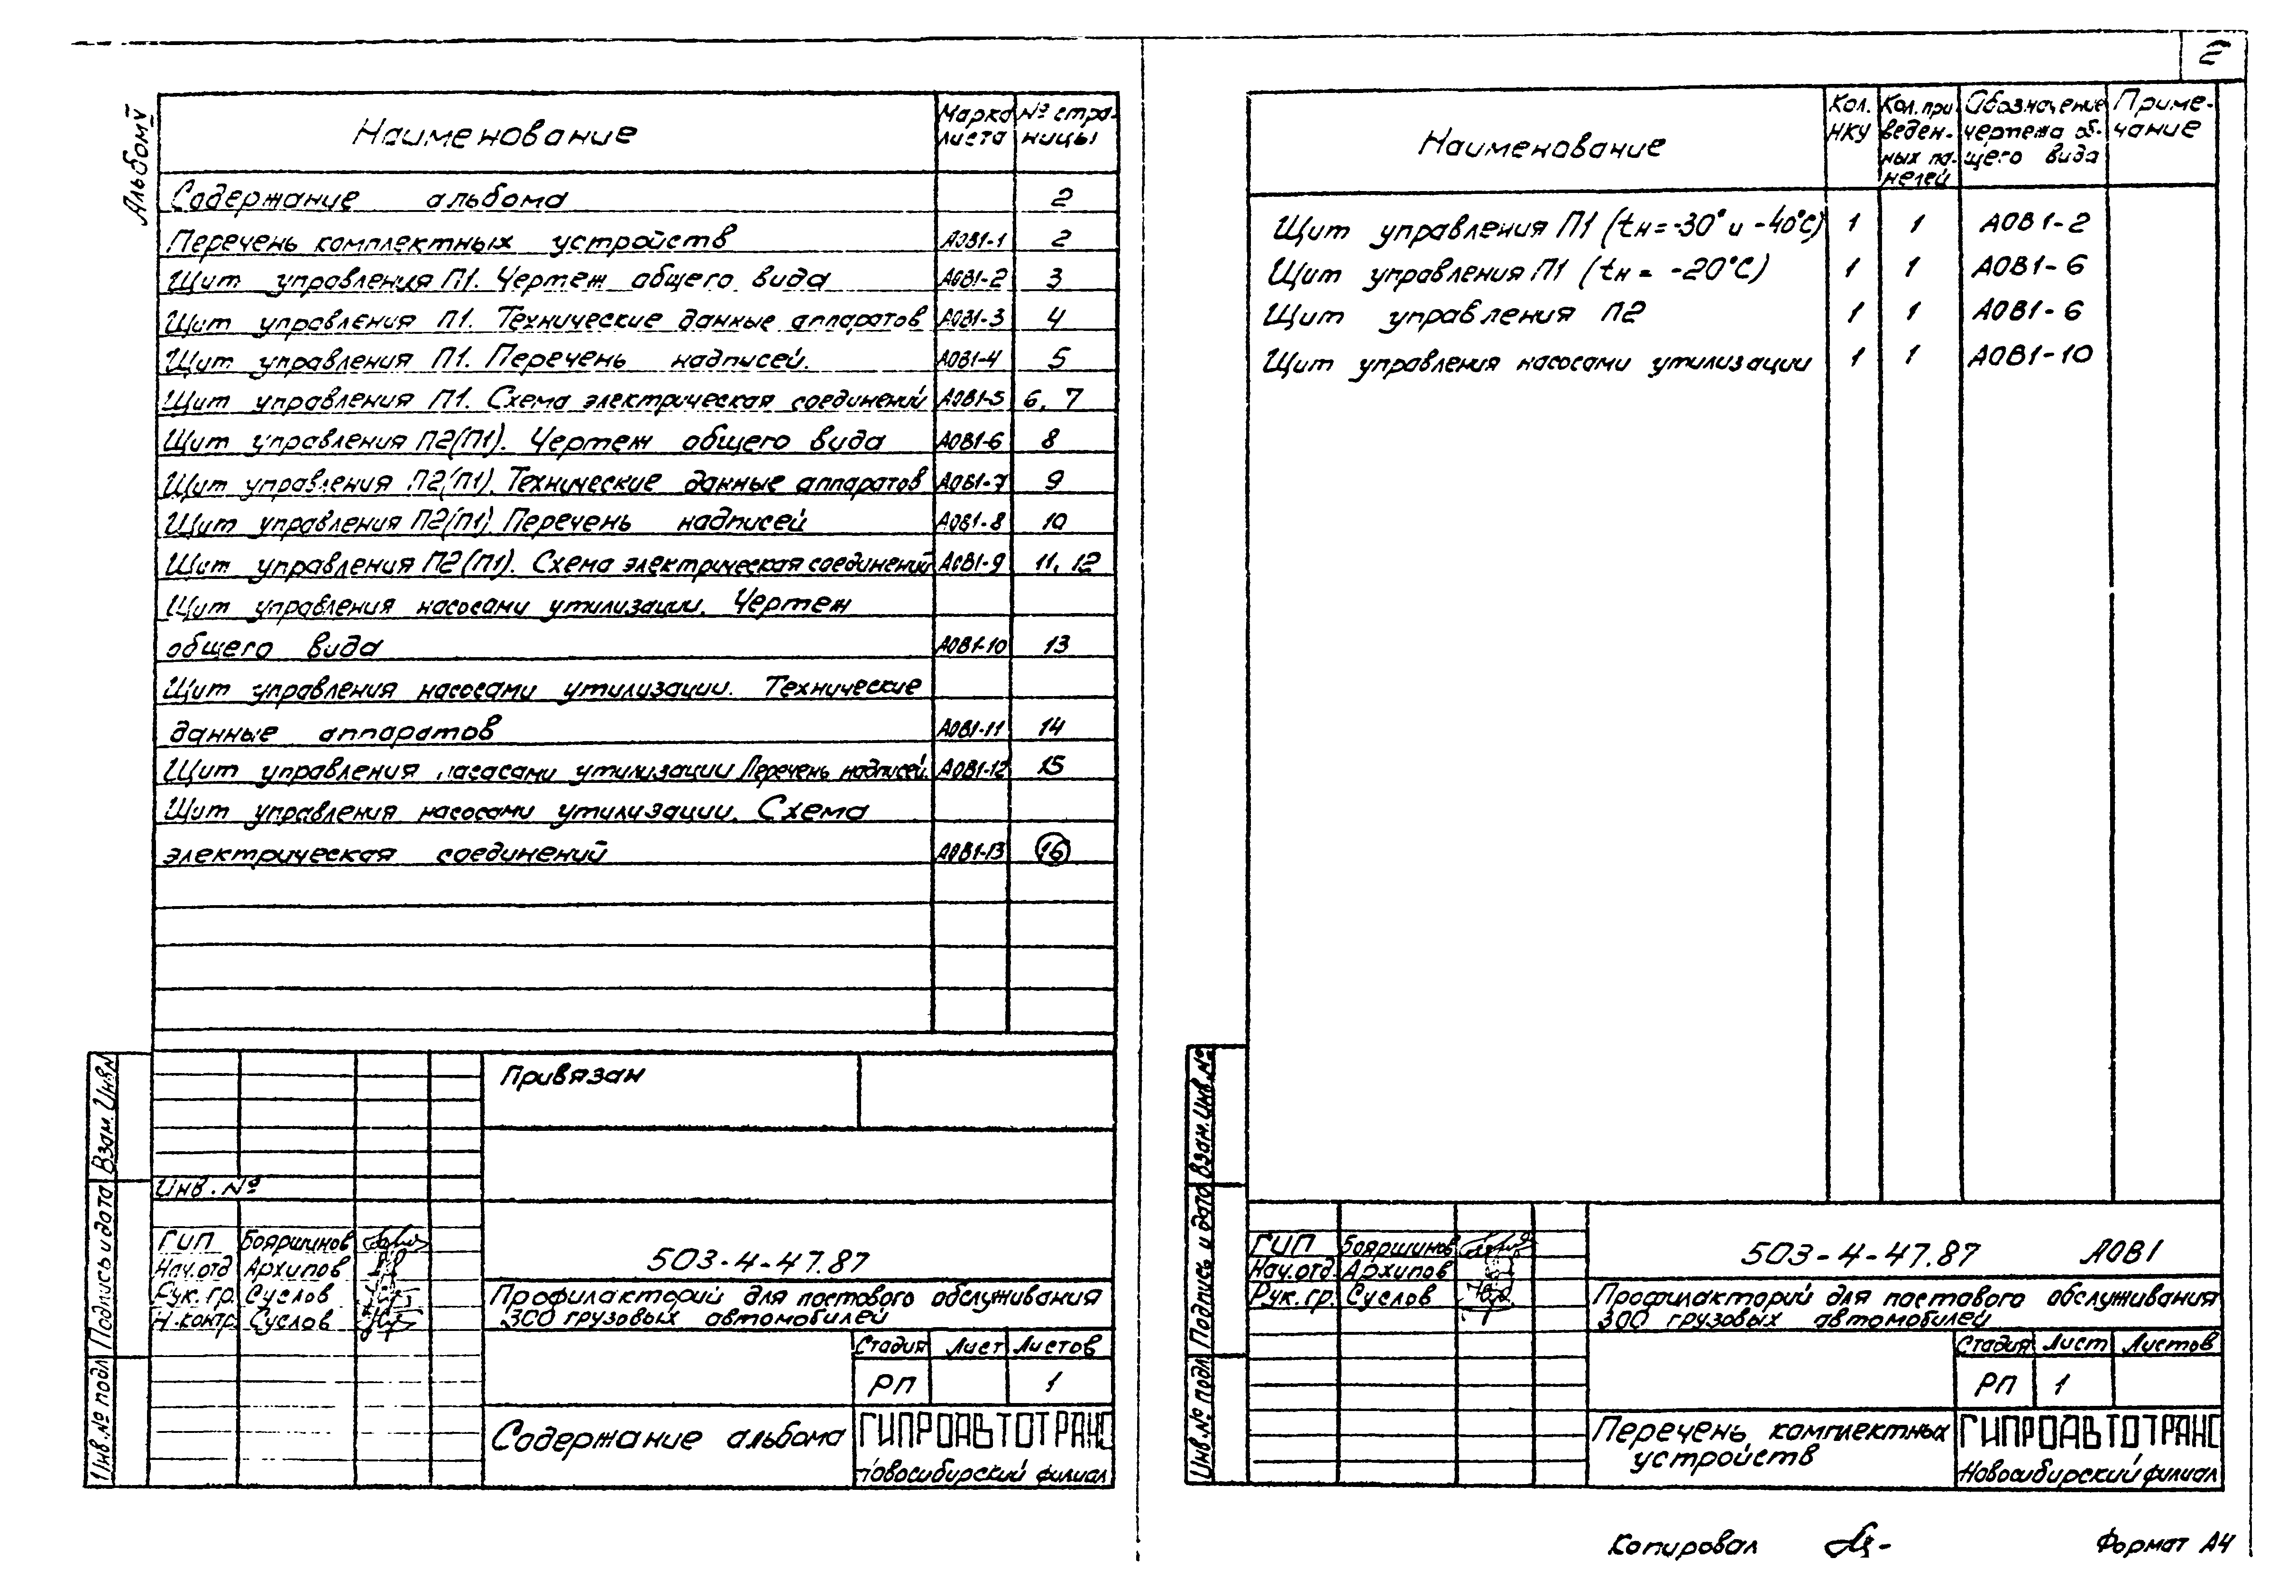 2
Альбом V
Наименование Марка листа № страницы
Содержание альбома 2
Перечень комплектных устройств АОВ1-1 2
Щит управления П1. Чертеж общего вида АОВ1-2 3
Щит управления П1. Технические данные аппаратов АОВ1-3 4
Щит управления П1. Перечень надписей. АОВ1-4 5
Щит управления П1. Схема электрическая соединений АОВ1-5 6, 7
Щит управления П2(П1). Чертеж общего вида АОВ1-6 8
Щит управления П2(П1). Технические данные аппаратов АОВ1-7 9
Щит управления П2(П1) Перечень надписей АОВ1-8 10
Щит управления П2(П1). Схема электрическая соединений АОВ1-9 11, 12
Щит управления насосами утилизации. Чертеж
общего вида АОВ1-10 13
Щит управления насосами утилизации. Технические
данные аппаратов АОВ1-11 14
Щит управления насосами утилизации Перечень надписей АОВ1-12 15
Щит управления насосами утилизации. Схема
электрическая соединений АОВ1-13 16
Привязан
Инв. №
ГИП Бояршинов
Нач.отд Архипов
Рук. гр. Суслов
Н.контр. Суслов
503-4-47.87
Профилакторий для постового обслуживания
300 грузовых автомобилей
Стадия Лист Листов
РП 1
Содержание альбома
ГИПРОАВТОТРАНС
Новосибирский филиал
Взам. Инв №
Подпись и дата
Инв. № подл
Наименование Кол. НКУ Кол. приведенных панелей Обозначение чертежа общего вида Примечание
Щит управления П1 (tн=-30° и -40°С) 1 1 АОВ1-2
Щит управления П1 (tн= -20°С) 1 1 АОВ1-6
Щит управления П2 1 1 АОВ1-6
Щит управления насосами утилизации 1 1 АОВ1-10
ГИП Бояршинов
Нач.отд. Архипов
Рук. гр. Суслов
503-4-47.87 АОВ1
Профилакторий для постового обслуживания
300 грузовых автомобилей
Стадия Лист Листов
РП 1
Перечень комплектных
устройств
ГИПРОАВТОТРАНС
Новосибирский филиал
Взам. Инв. №
Подпись и дата
Инв. № подл
Копировал
Формат А4